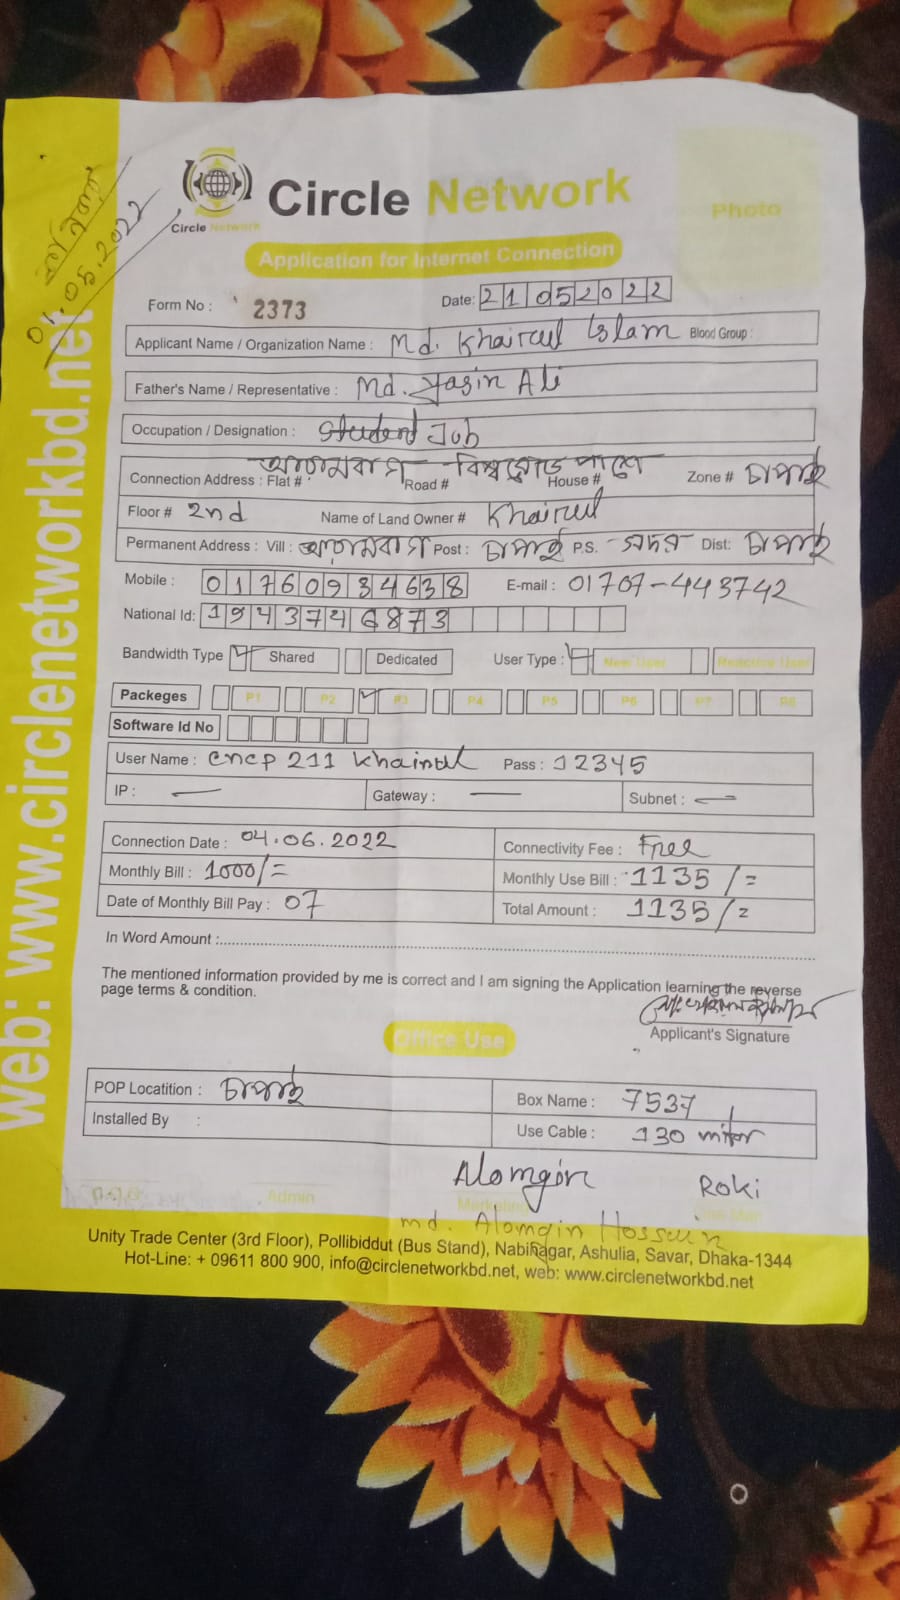 01.05.2022
web: www.circlenetworkbd.net
Circle Network
Circle Network
Photo
Application for Internet Connection
Form No : 2373
Date: 21052022
Applicant Name / Organization Name : Md. Khairul Islam Blood Group :
Father's Name / Representative : Md. Yasin Ali
Occupation / Designation : Student Job
Connection Address : Flat # Road # বিশ্বরোড House # পাশে Zone # চাপাই
Floor # 2nd Name of Land Owner # Khairul
Permanent Address : Vill : Post : চাপাই P.S. সদর Dist: চাপাই
Mobile : 01760934638 E-mail : 01707-443742
National Id: 1943746873
Bandwidth Type Shared Dedicated User Type : New User Reactive User
Packeges P1 P2 P3 P4 P5 P6 P7 P8
Software Id No
User Name : cncp 211 khairul Pass : 12345
IP : — Gateway : — Subnet : —
Connection Date : 04.06.2022 Connectivity Fee : Free
Monthly Bill : 1000/= Monthly Use Bill : 1135/=
Date of Monthly Bill Pay : 07 Total Amount : 1135/=
In Word Amount :
The mentioned information provided by me is correct and I am signing the Application learning the reverse
page terms & condition.
Applicant's Signature
Office Use
POP Locatition : চাপাই Box Name : 7537
Installed By : Use Cable : 130 mitar
Alomgir Roki
Admin Marketing Line Man
md. Alomgin Hossain
Unity Trade Center (3rd Floor), Pollibiddut (Bus Stand), Nabinagar, Ashulia, Savar, Dhaka-1344
Hot-Line: + 09611 800 900, info@circlenetworkbd.net, web: www.circlenetworkbd.net